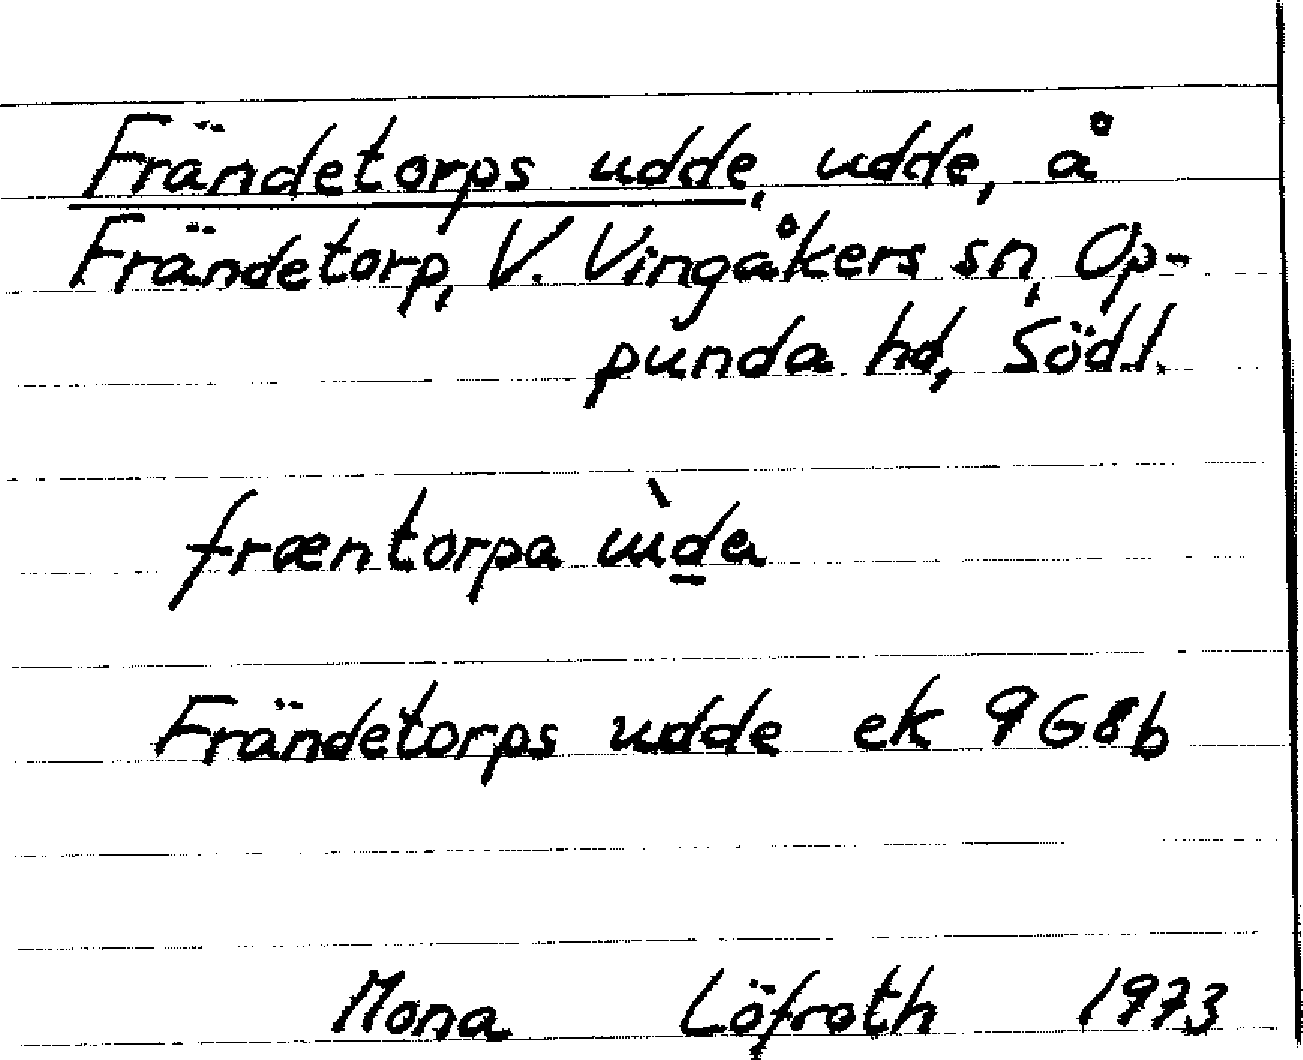 Frändetorps udde, udde, å
Frändetorp, V. Vingåkers sn, Op-
punda hd, Södl.
fræntorpa ɯ̀d̲a
Frändetorps udde ek 9G8b
Mona Löfroth 1973